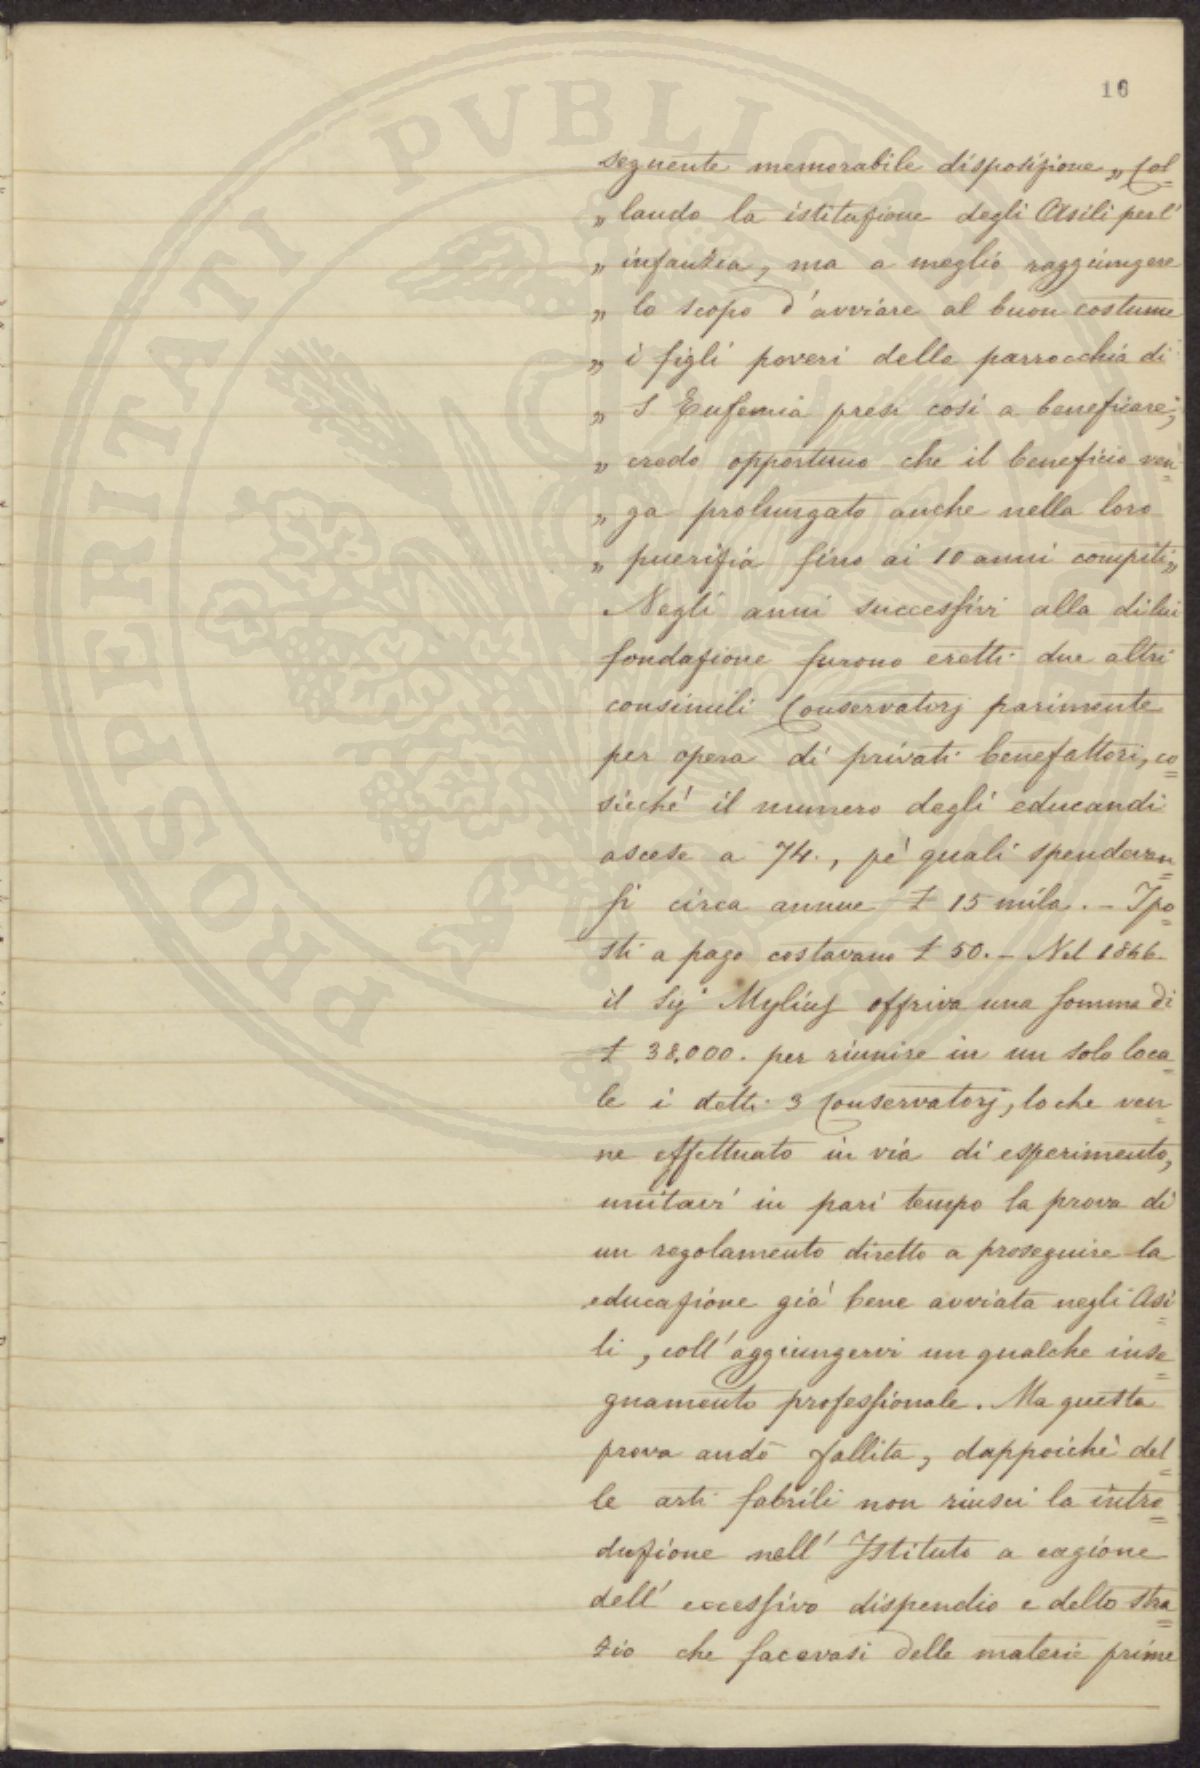 16
PROSPERITATI PVBLICAE
seguente memorabile disposizione „ Col=
„ laudo la istituzione degli Asili perl'
„ infanzia, ma a meglio raggiungere
„ lo scopo d'avviare al buon costume
„ i figli poveri della parrocchia di
„ S Eufemia presi così a beneficare;
„ credo opportuno che il beneficio ven=
„ ga prolungato anche nella loro
„ puerizia fino ai 10 anni compiti„
Negli anni successivi alla dilui
fondazione furono eretti due altri
consimili Conservatorj parimente
per opera di privati benefattori, co=
sicché il numero degli educandi
ascese a 74., pè quali spendevan=
si circa annue £ 15 mila. - I po=
sti a pago costavano £ 50. - Nel 1846
il Sig Mylius offriva una somma di
£ 38,000. per riunire in un solo loca=
le i detti 3 Conservatorj, lo che ven=
ne effettuato in via di esperimento,
unitavi in pari tempo la prova di
un regolamento diretto a proseguire la
educazione già bene avviata negli Asi=
li, coll'aggiungervi un qualche inse=
gnamento professionale. Ma questa
prova andò fallita, dappoichè del=
le arti fabrili non riusci la intro=
duzione nell'Istituto a cagione
dell'eccessivo dispendio e dello stra=
zio che facevasi delle materie prime